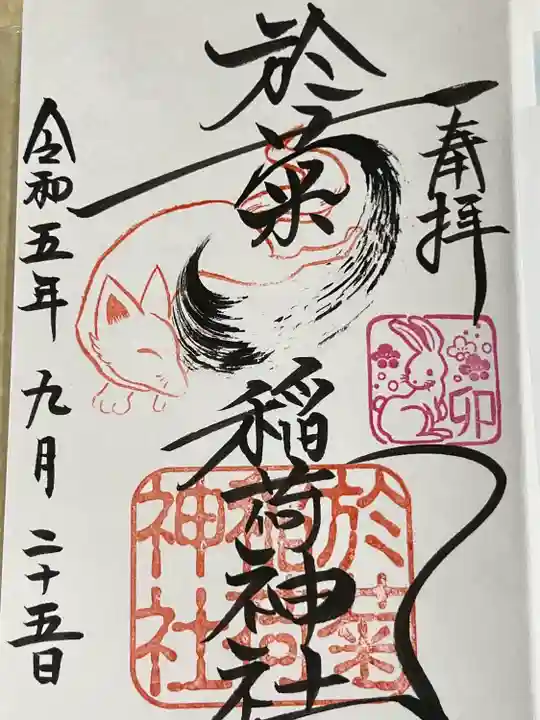 奉拝
卯
於菊稲荷神社
於菊
稲荷
神社
令和五年九月二十五日